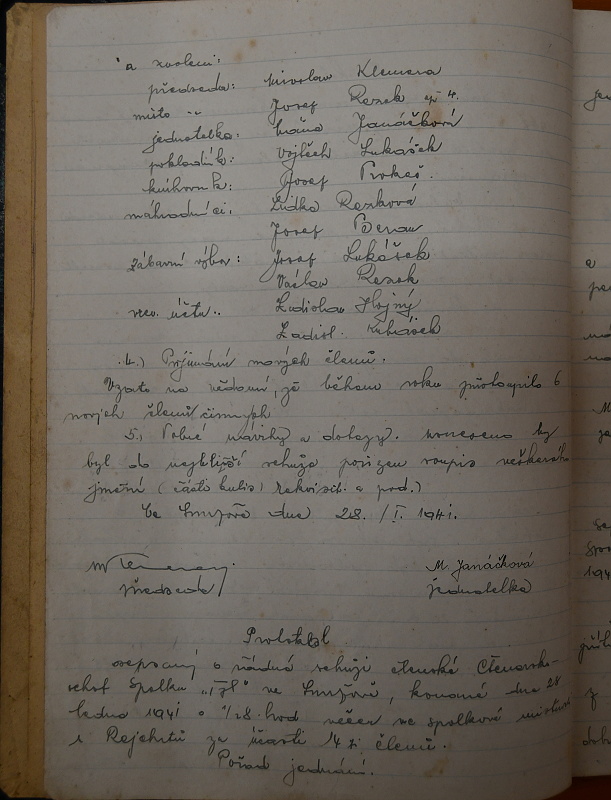 a zvoleni:
předseda: Miroslav Klemera
místo -"- Josef Rezek čp 4.
jednatelka: Máňa Janáčková
pokladník: Vojtěch Lukášek
knihovník: Josef Prokeš.
náhradníci: Lidka Rezková
Josef Beran
zábavní výbor: Josef Lukášek
Václav Rezek
rev. účtu.. Ladislav Hojný
Ladisl.
4.) Přijímání nových členů.
Vzato na vědomí, že během roku přistoupilo 6
nových členů činných
5., Volné návrhy a dotazy. usneseno by
byl do nejbližší schůze pořízen soupis veškerého
jmění (části kulis) rekvisit. a pod.)
Ve dne 28. /I. 1941.
předseda
M. Janáčková
jednatelka
Protokol
sepsaný o řádné schůzi členské Čtenářsko-
spolku ve konané dne 28
ledna 1941 o 1/28. hod večer ve spolkové místnosti
u Rejchrtů za účasti 14 ti členů.
Pořad jednání.